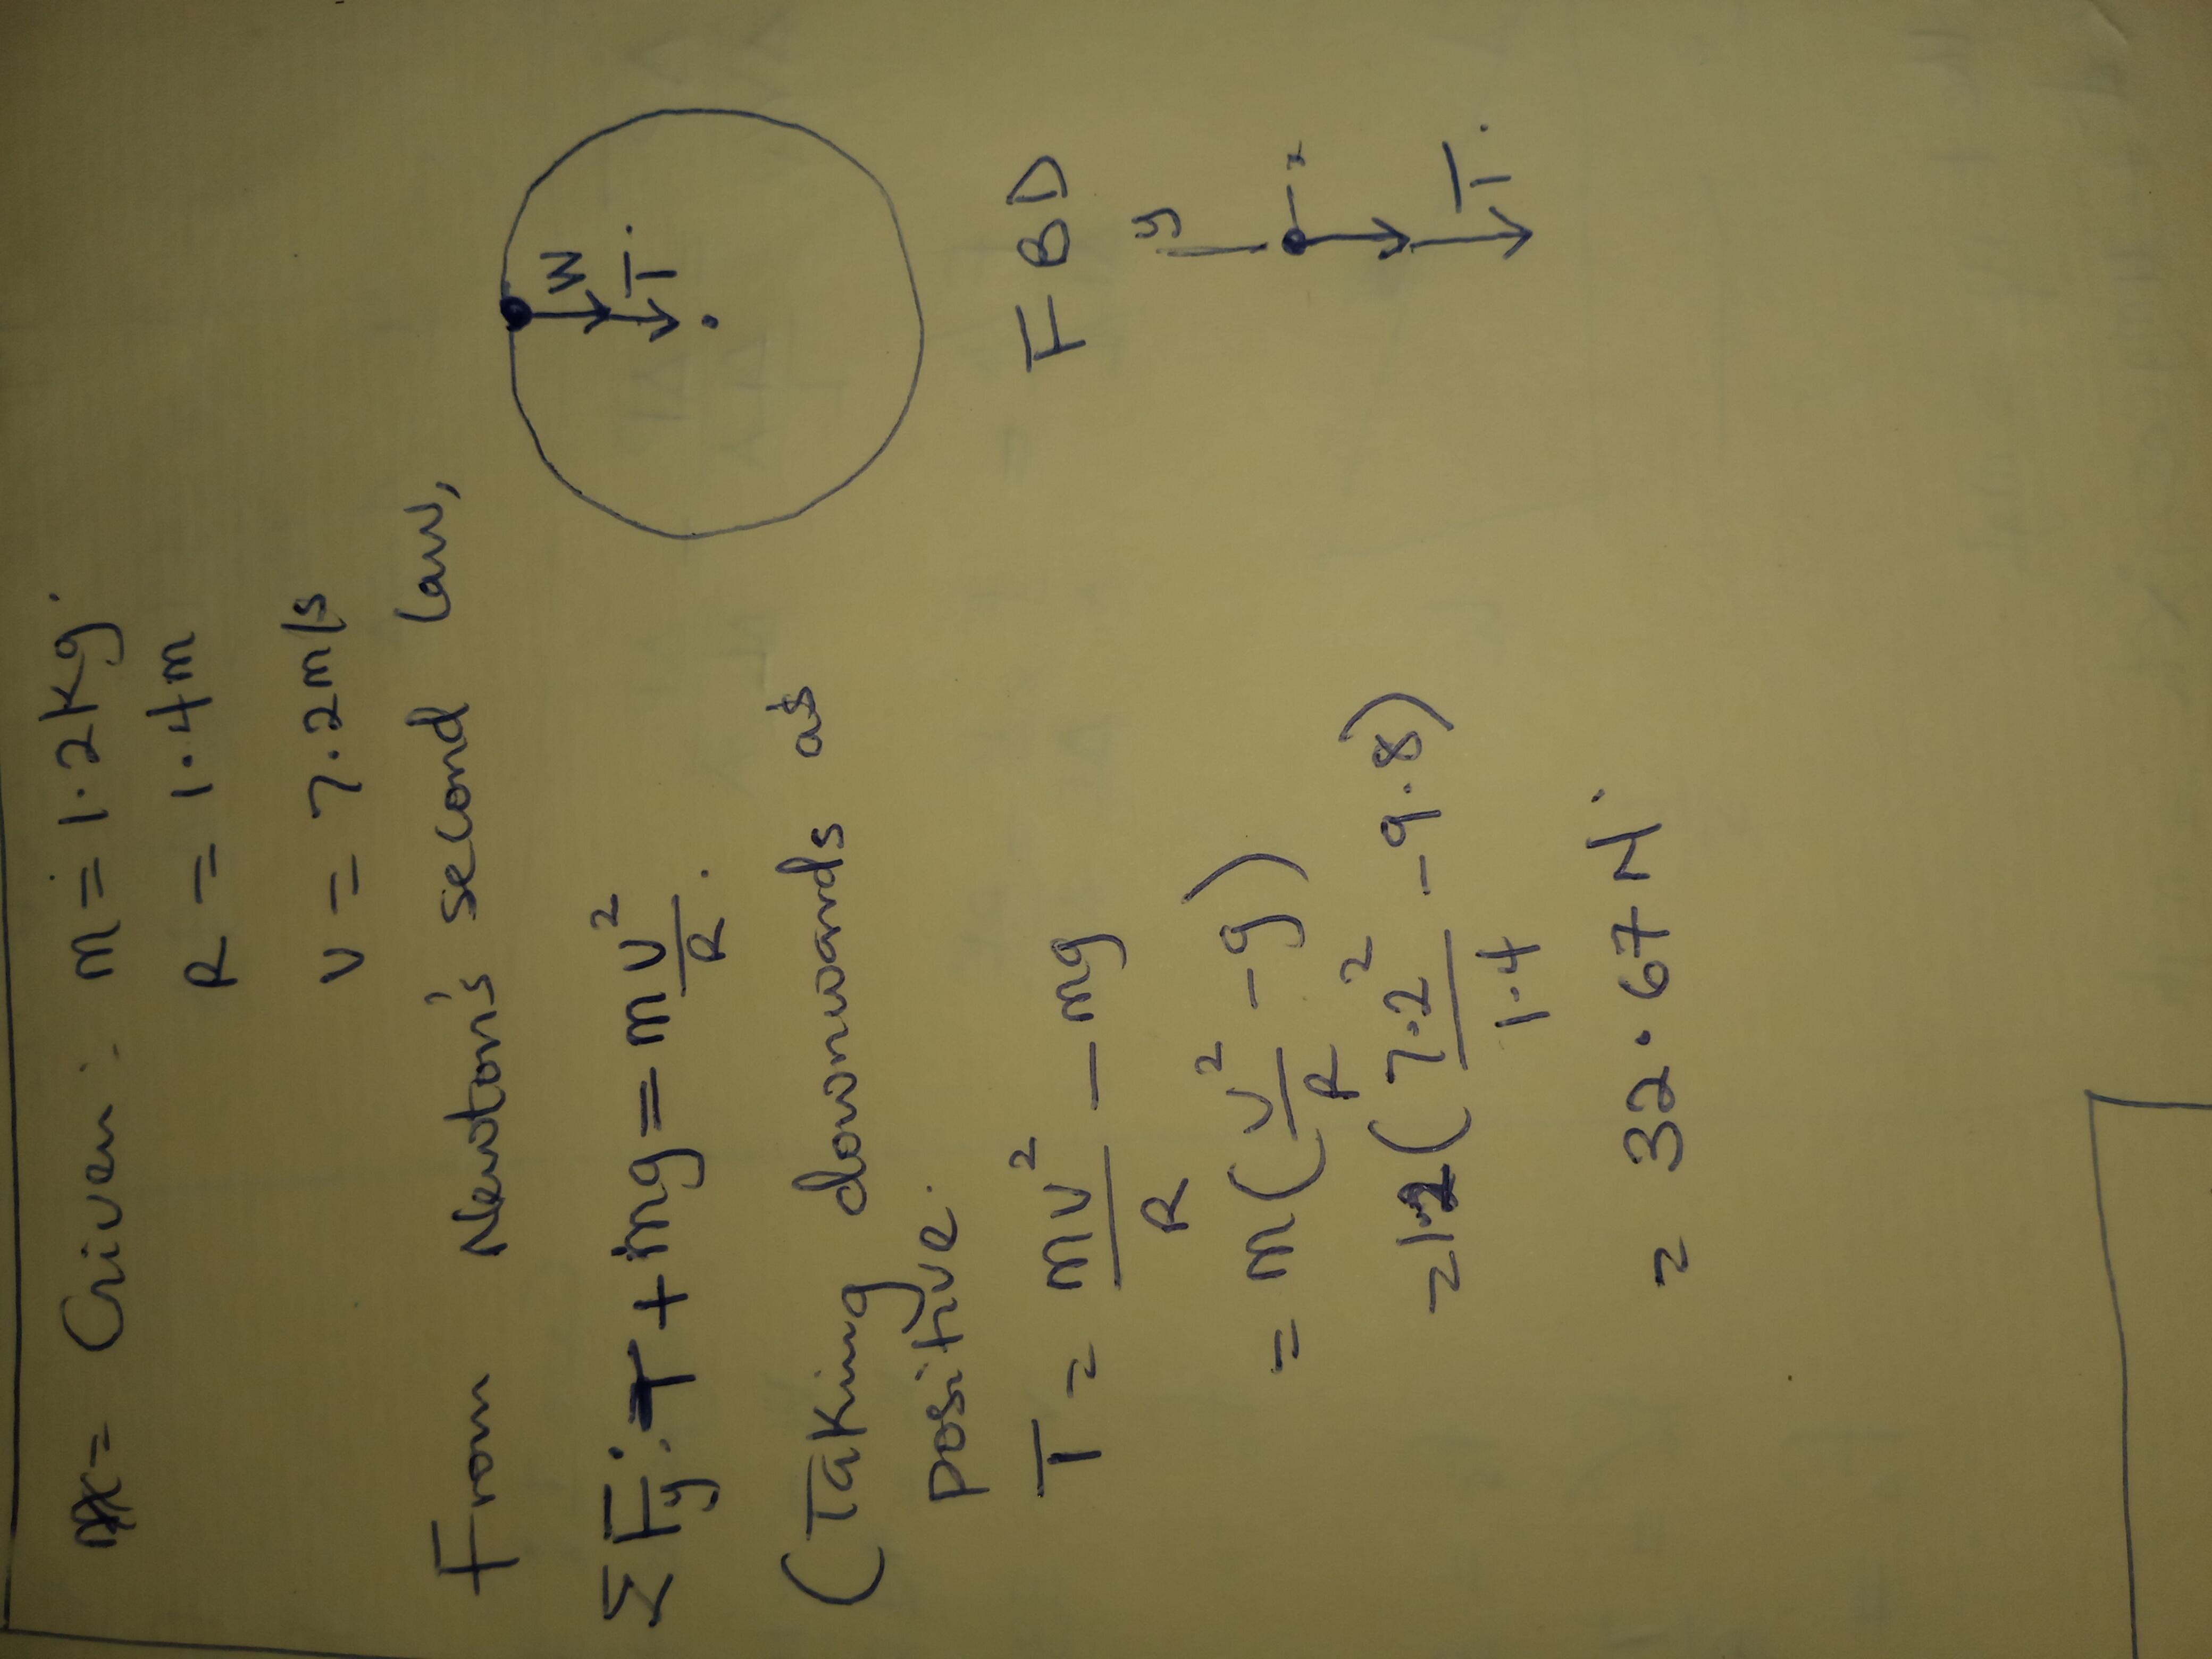 Given: m = 1.2 kg.
R = 1.4 m
v = 7.2 m/s
From Newton's second law,
ΣFy: T + mg = m v²/R.
(Taking downwards as
positive.
T = mv²/R - mg
= m(v²/R - g)
= 1.2(7.2²/1.4 - 9.8)
= 32.67 N.
W
T.
FBD
y
x
T.